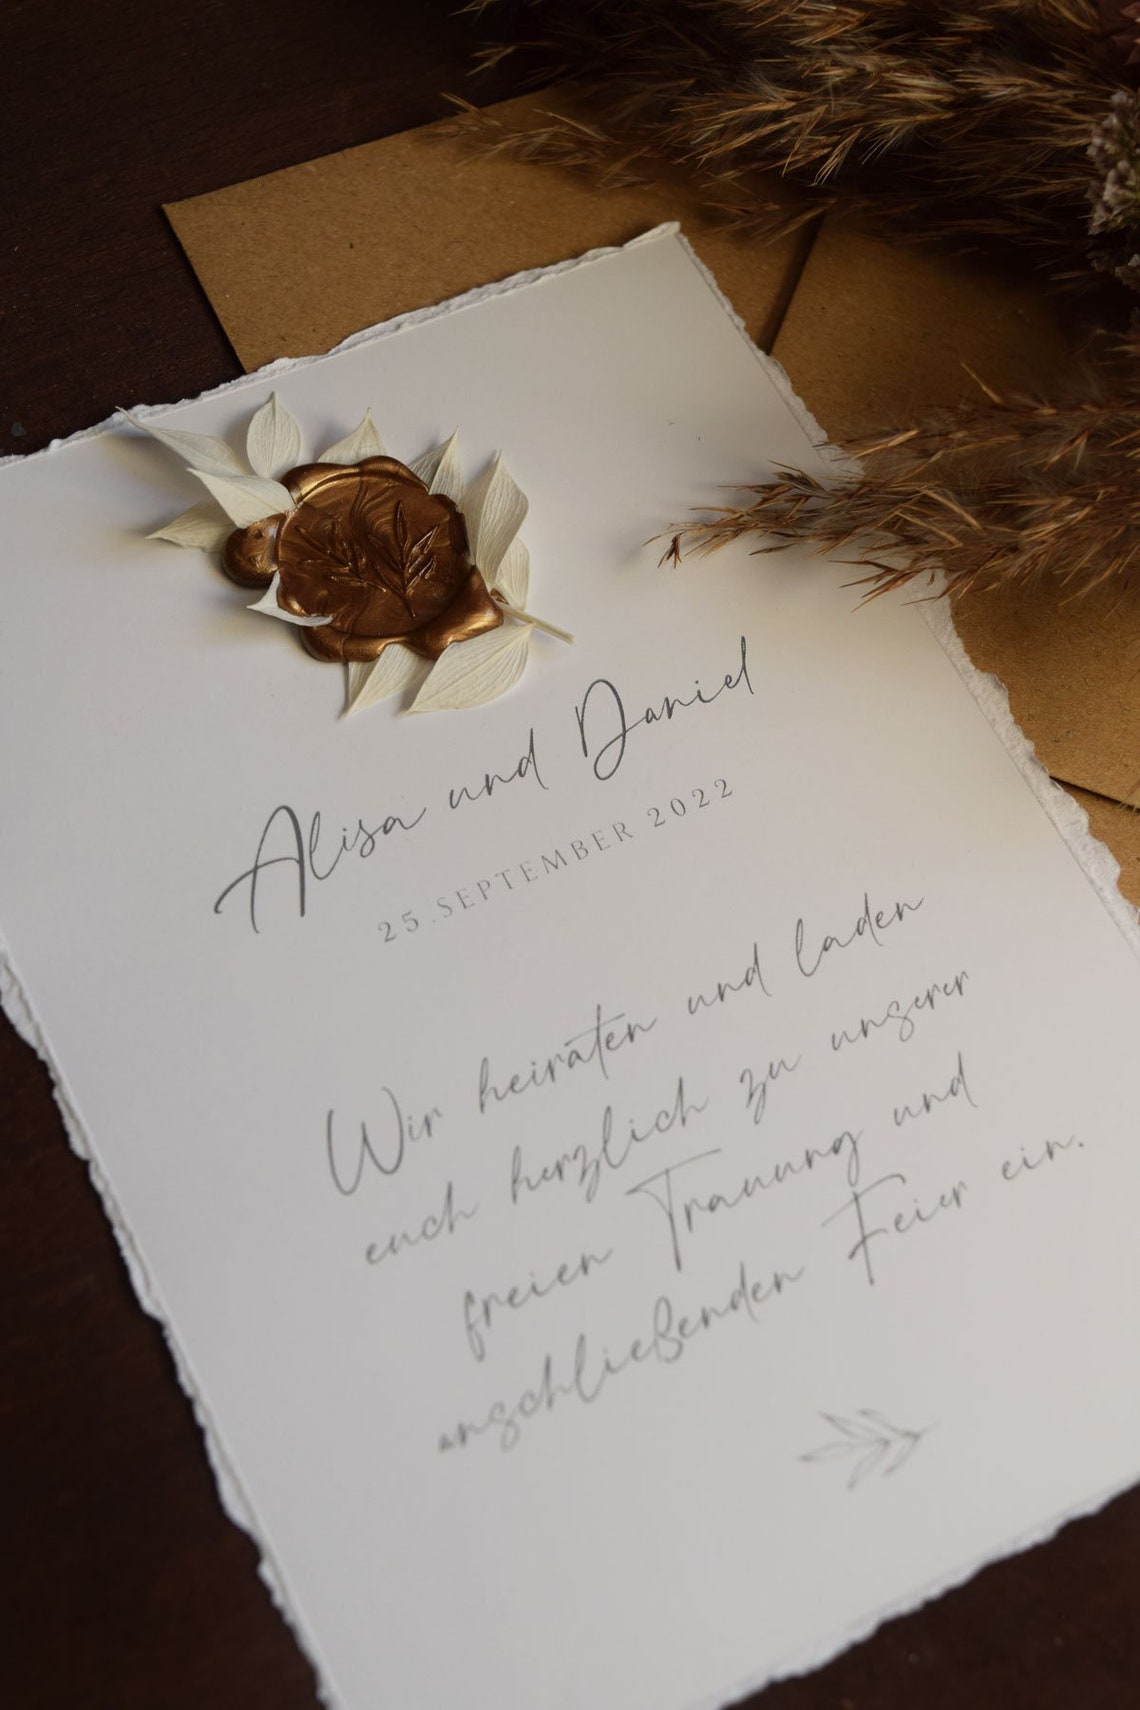 Alisa und Daniel
25.SEPTEMBER 2022
Wir heiraten und laden
euch herzlich zu unserer
freien Trauung und
anschließenden Feier ein.